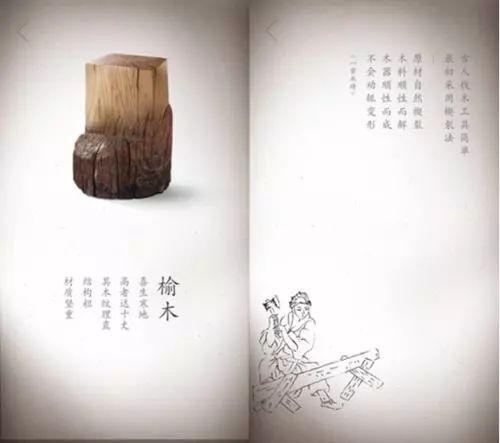 榆木
喜生寒地
高者达十丈
其木纹理直
结构粗
材质坚重
古人伐木工具简单
最初采用楔裂法
原材自然楔裂
木料顺性而解
木器顺性而成
不会动辄变形